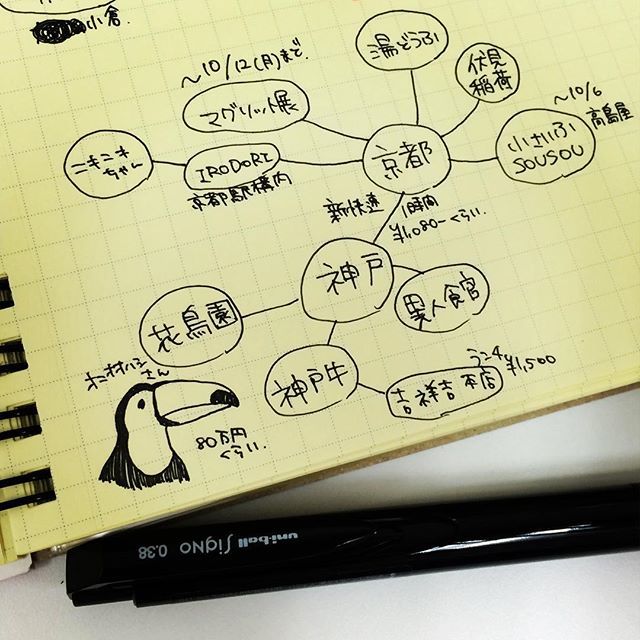 小倉.
湯どうふ
伏見
稲荷
〜10/12(月)まで.
マグリット展
〜10/6
高島屋
ニキニキ
ちゃん
IRODORI
京都駅構内
京都
小さいふ
SOUSOU
新快速
1時間
¥1,080-くらい.
神戸
花鳥園
異人食官
神戸牛
吉祥吉本店
ランチ
¥1,500
オニオオハシ
さん
80万円
くらい.
uni-ball SigNO 0.38